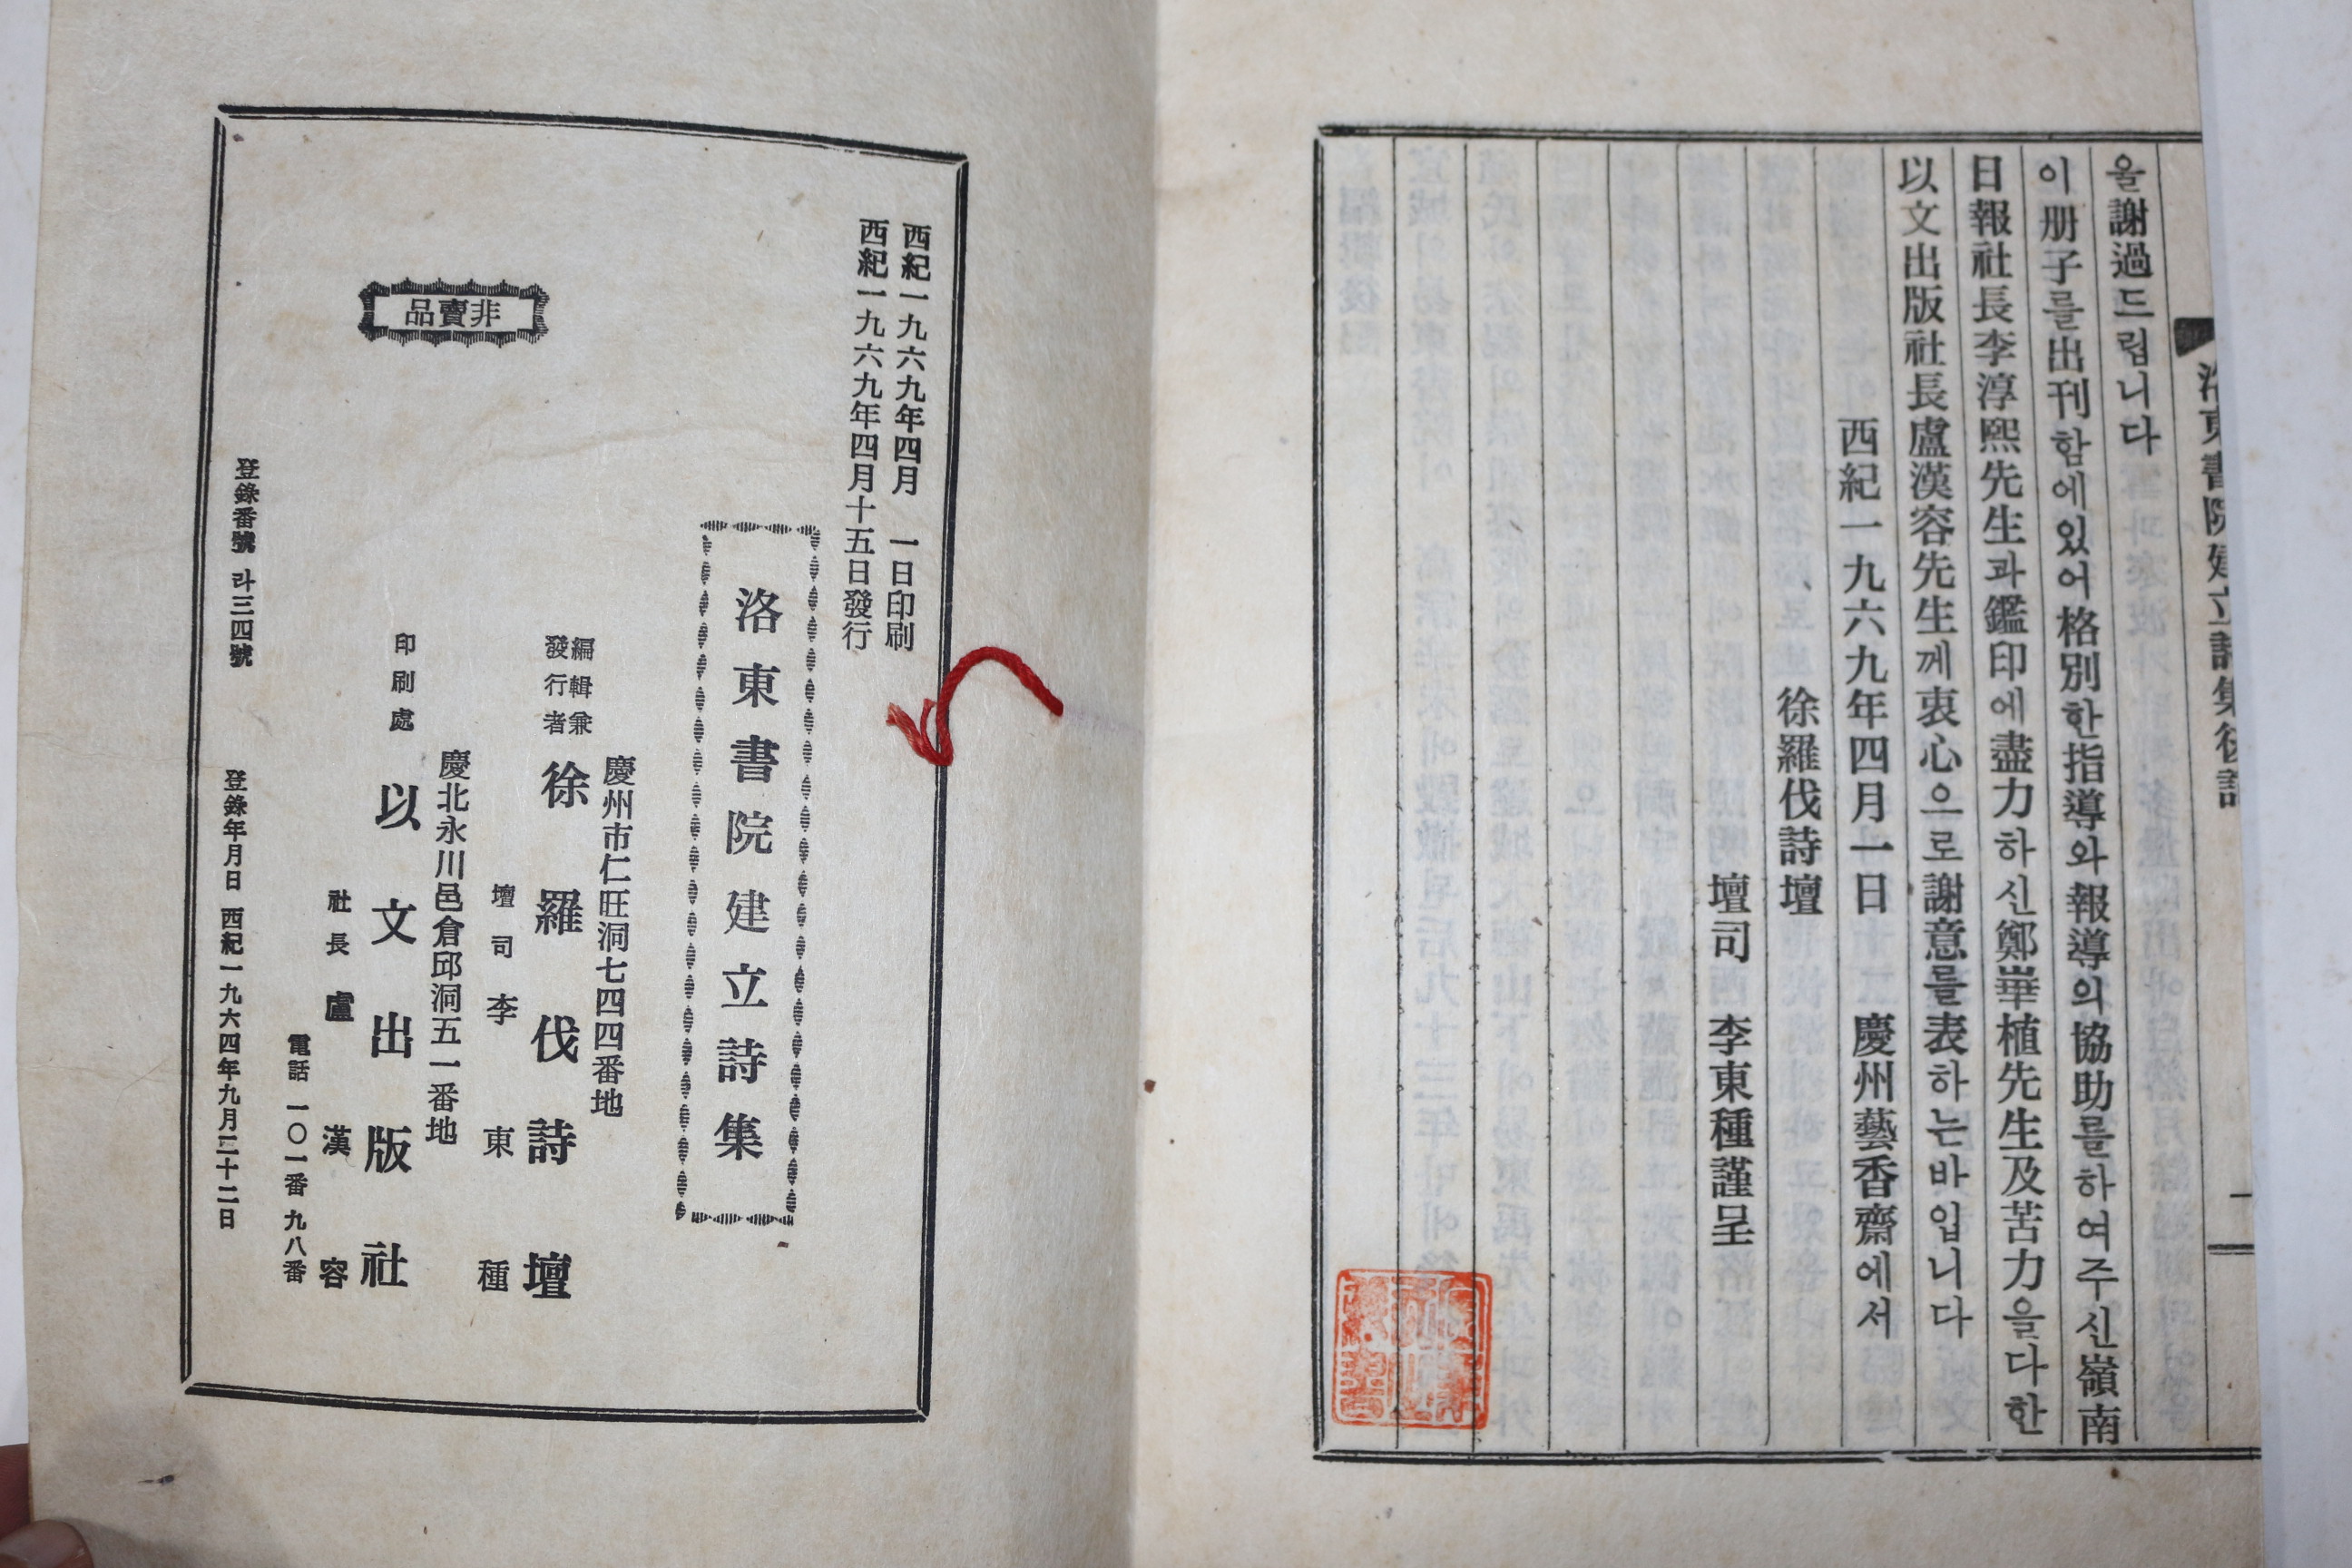 洛東書院建立詩集後記
一
올謝過드립니다
이册子를出刊함에있어格別한指導와報導의協助를하여주신嶺南
日報社長李淳熙先生과鑑印에盡力하신鄭崋植先生及苦力을다한
以文出版社長盧漢容先生께衷心으로謝意를表하는바입니다
西紀一九六九年四月一日 慶州藝香齋에서
徐羅伐詩壇
壇司 李東種謹呈
西紀一九六九年四月 一日印刷
西紀一九六九年四月十五日發行
洛東書院建立詩集
慶州市仁旺洞七四四番地
編輯兼發行者 徐羅伐詩壇
壇司 李東種
慶北永川邑倉邱洞五一番地
印刷處 以文出版社
社長 盧漢容
電話 一〇一番 九八番
非賣品
登錄番號 라三四號
登錄年月日 西紀一九六四年九月二十二日